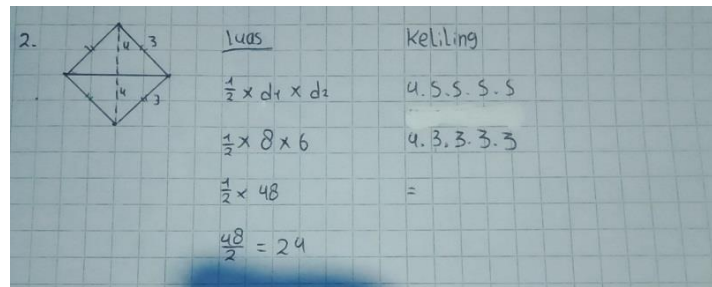 2.
4 3
4 3
luas
1/2 x d1 x d2
1/2 x 8 x 6
1/2 x 48
48/2 = 24
Keliling
4. s. s. s. s
4. 3. 3. 3. 3
=